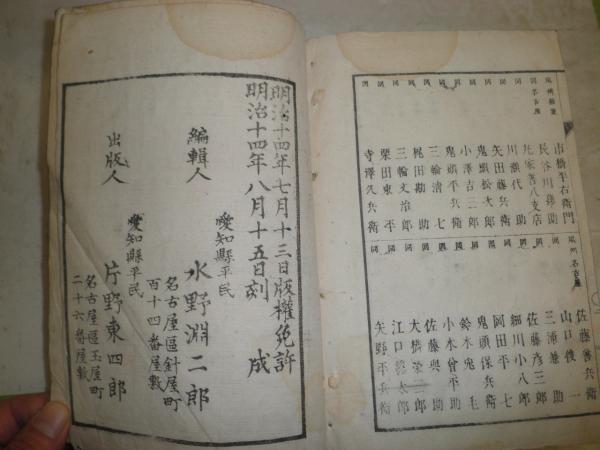 尾州名古屋
佐藤善兵衛
山口俊一
三浦兼助
佐藤彦三郎
細川小八郎
岡田平七
鬼頭保兵衛
鈴木兎毛
小木曽平助
佐藤與助
大橋栄二郎
江口
矢野平兵衛
市橋平右衛門
長谷川孫助
九家善八支店
川瀬代助
矢田藤兵衛
鬼頭松次郎
小澤吉三郎
鬼頭平兵衛
三輪清七
梶田勘助
三輪文治郎
栗田東平
寺澤久兵衛
明治十四年七月十三日版權免許
明治十四年八月十五日刻成
編輯人
愛知縣平民
水野淵二郎
名古屋區針屋町
百十四番屋敷
出版人
愛知縣平民
片野東四郎
名古屋區玉屋町
二十六番屋敷